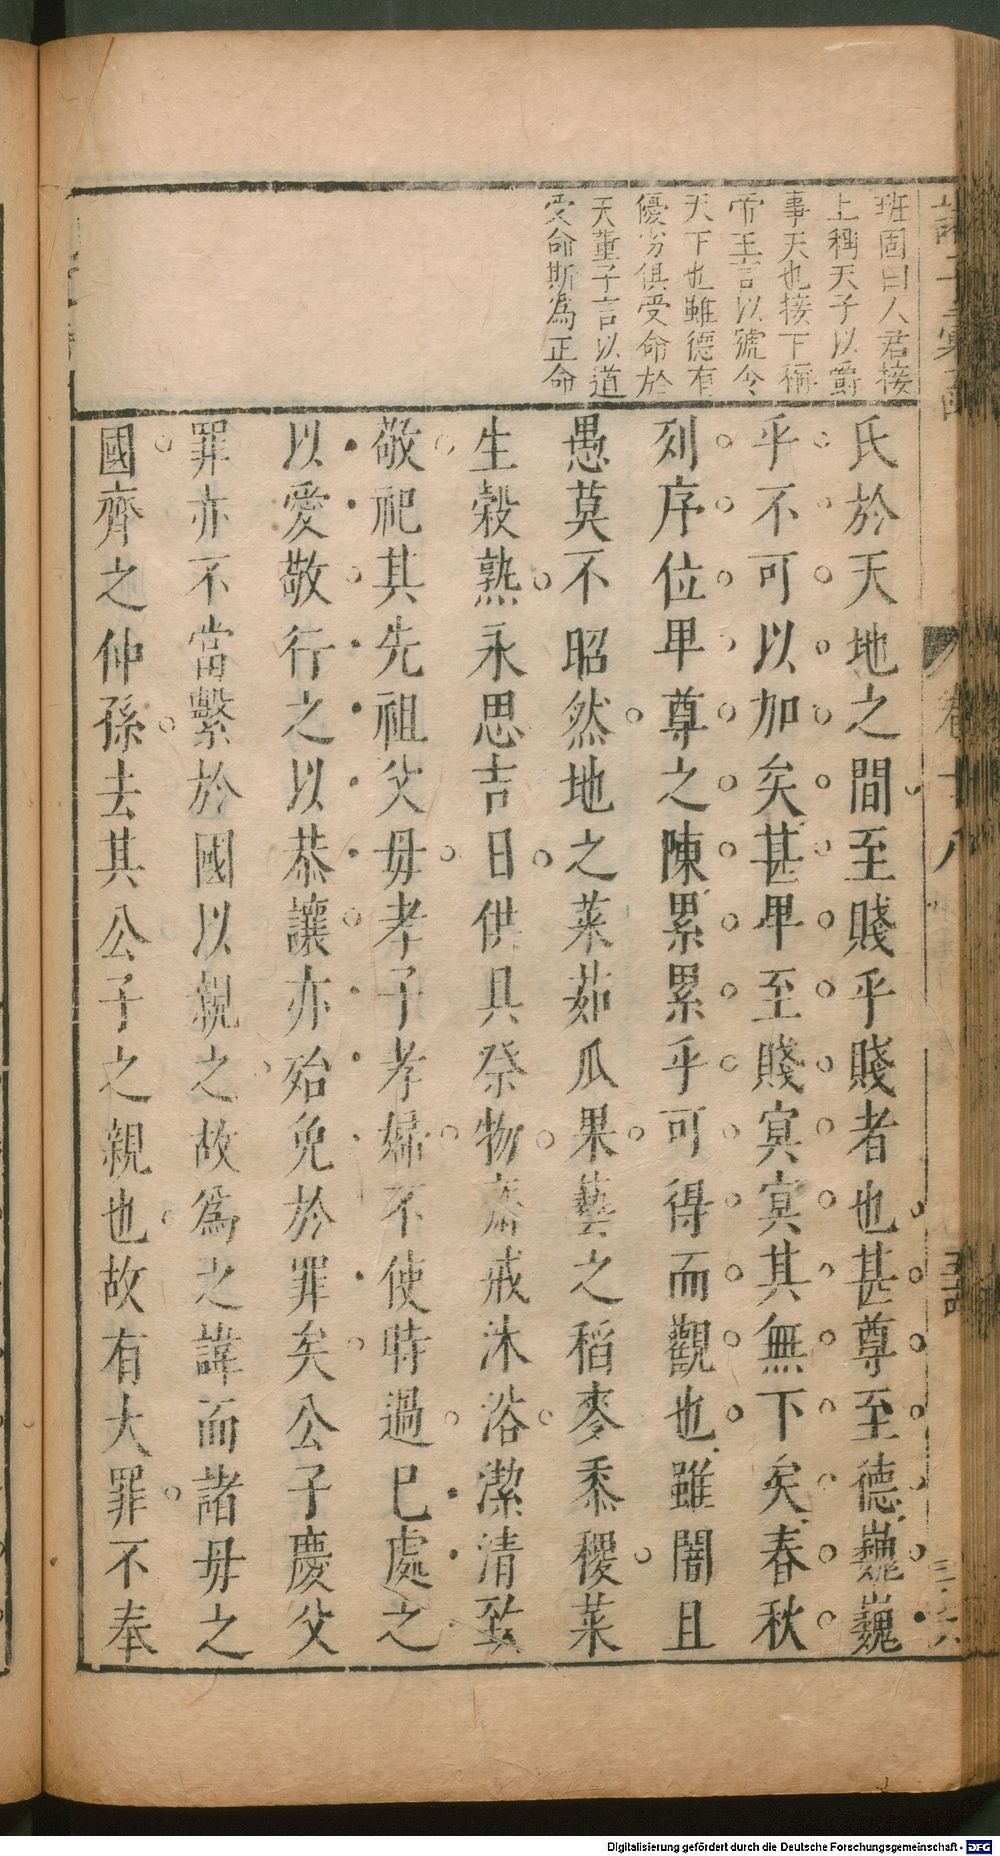 班固曰人君接
上稱天子以爵
事天也接下稱
帝王言以號令
天下也雖德有
優劣俱受命於
天董子言以道
受命斯為正命
氏於天地之間至賤乎賤者也甚尊至德巍巍
乎不可以加矣甚卑至賤冥冥其無下矣春秋
列序位卑尊之陳累累乎可得而觀也雖闇且
愚莫不昭然地之菜茹瓜果藝之稻麥黍稷菜
生穀熟永思吉日供具祭物齋戒沐浴潔清致
敬祀其先祖父母孝子孝婦不使時過已處之
以愛敬行之以恭讓亦殆免於罪矣公子慶父
罪亦不當繫於國以親之故為之諱而諸毋之
國齊之仲孫去其公子之親也故有大罪不奉
卷十八
Digitalisierung gefördert durch die Deutsche Forschungsgemeinschaft - DFG